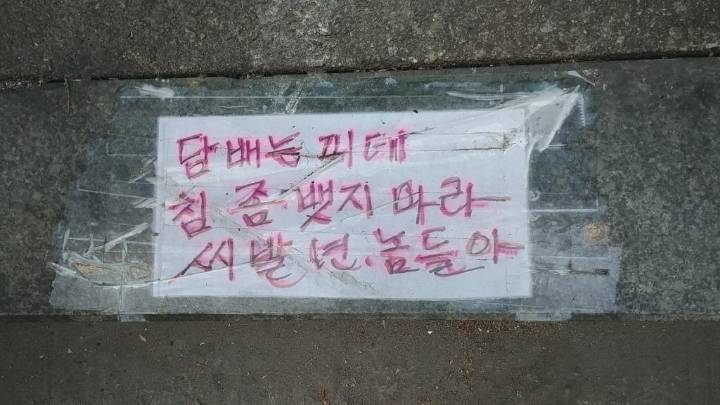 담배는 피데
침 좀 뱃지 마라
씨발 년.놈들아